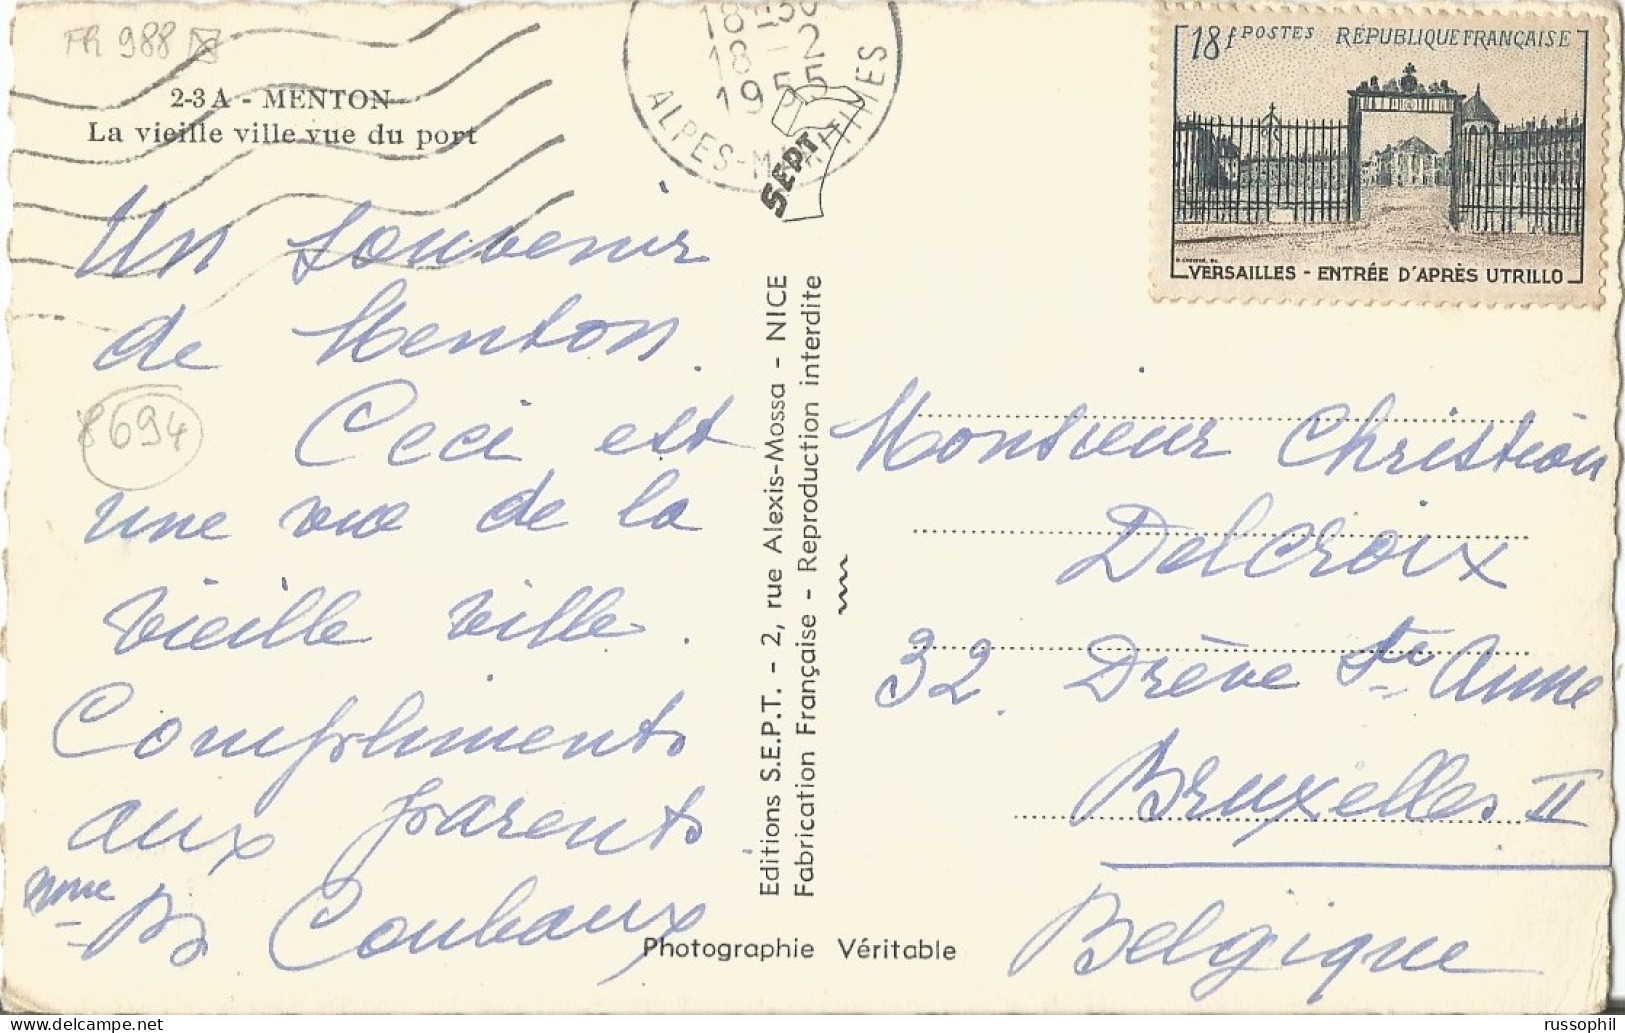 FR 988
2-3 A - MENTON
La vieille ville vue du port
18-2
1955
ALPES-MARITIMES
SEPT
18f POSTES RÉPUBLIQUE FRANÇAISE
VERSAILLES - ENTRÉE D'APRÈS UTRILLO
Un souvenir
de Menton.
8694
Ceci est
une vue de la
vieille ville.
Compliments
aux parents
Mme B Coubaux
Editions S.E.P.T. - 2, rue Alexis-Mossa - NICE
Fabrication Française - Reproduction interdite
Photographie Véritable
Monsieur Christian
Delcroix
32. Drève Ste Anne
Bruxelles II
Belgique
russophil delcampe.net